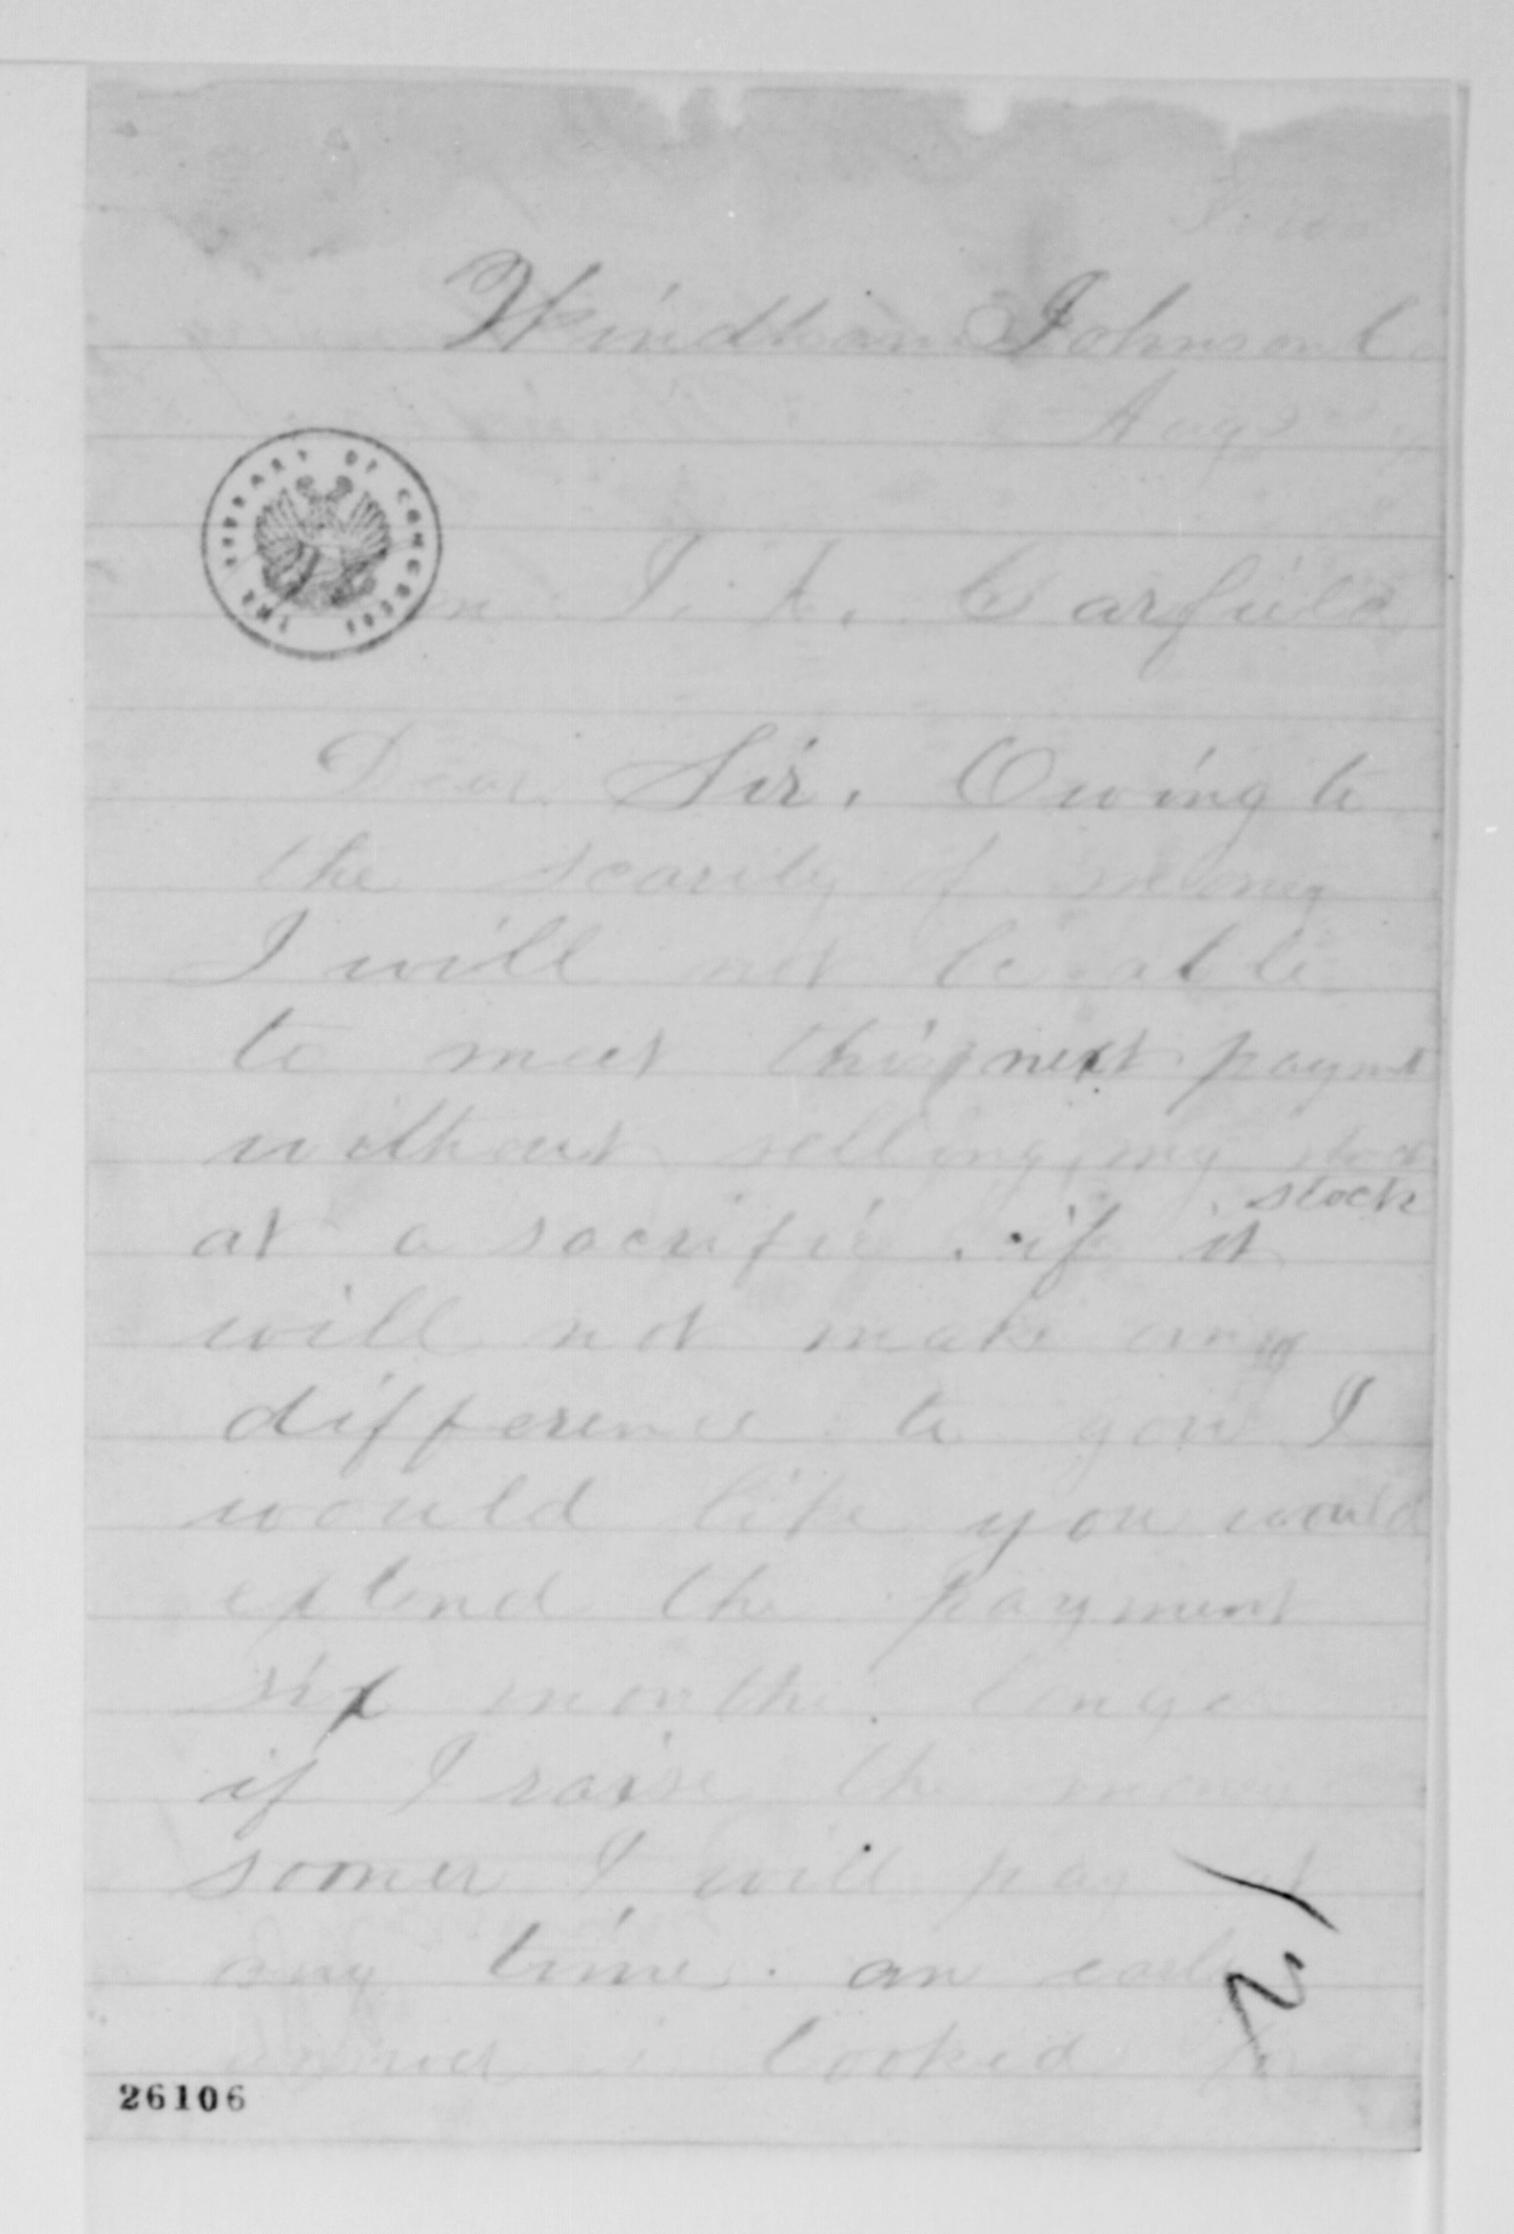 Iowa
Windham Johnson Co
Aug
THE LIBRARY OF CONGRESS
J. A. Garfield
Dear Sir. Owing to
the scarity of money
I will not be able
to meet this next paymt
without selling my stock
stock
at a sacrifice. if it
will not make any
difference to you I
would like you would
extend the payment
six months longer
if I raise the money
sooner I will pay it
any time. an early
answer is looked for
12
26106